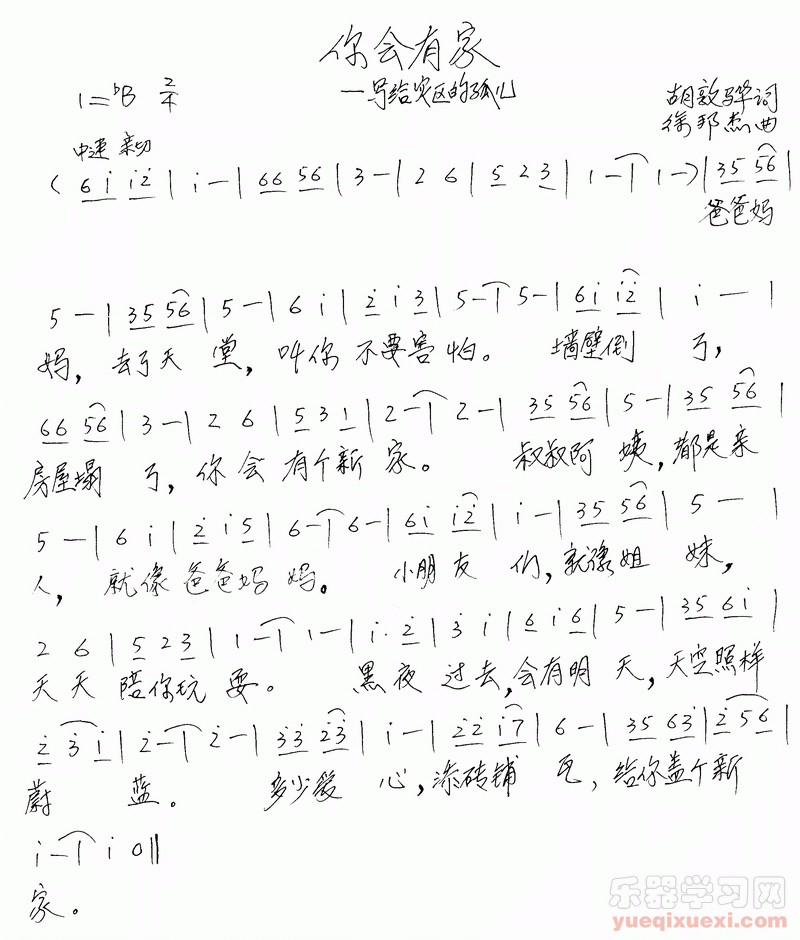 你会有家
—写给灾区的孤儿
1=♭B 2/4
胡敦骅词
徐邦杰曲
中速 亲切
( 6 i i 2 | i — | 66 56 | 3 — | 2 6 | 5 2 3 | 1 — | 1 — ) | 35 56 |
爸爸妈
5 — | 35 56 | 5 — | 6 i | 2 i 3 | 5 — | 5 — | 6i i2 | i — |
妈，去了天堂，叫你不要害怕。墙壁倒了，
66 56 | 3 — | 2 6 | 5 3 1 | 2 — | 2 — | 35 56 | 5 — | 35 56 |
房屋塌了，你会有个新家。叔叔阿姨，都是亲
5 — | 6 i | 2 i 5 | 6 — | 6 — | 6i i2 | i — | 35 56 | 5 — |
人，就像爸爸妈妈。小朋友们，就像姐妹，
2 6 | 5 2 3 | 1 — | 1 — | i. 2 | 3 i | 6 i 6 | 5 — | 35 6i |
天天陪你玩耍。黑夜过去，会有明天，天空照样
2 3 i | 2 — | 2 — | 33 23 | i — | 22 i7 | 6 — | 35 63 | 2 5 6 |
蔚蓝。多少爱心，添砖铺瓦，给你盖个新
i — | i 0 ‖
家。
乐器学习网
yueqixuexi.com